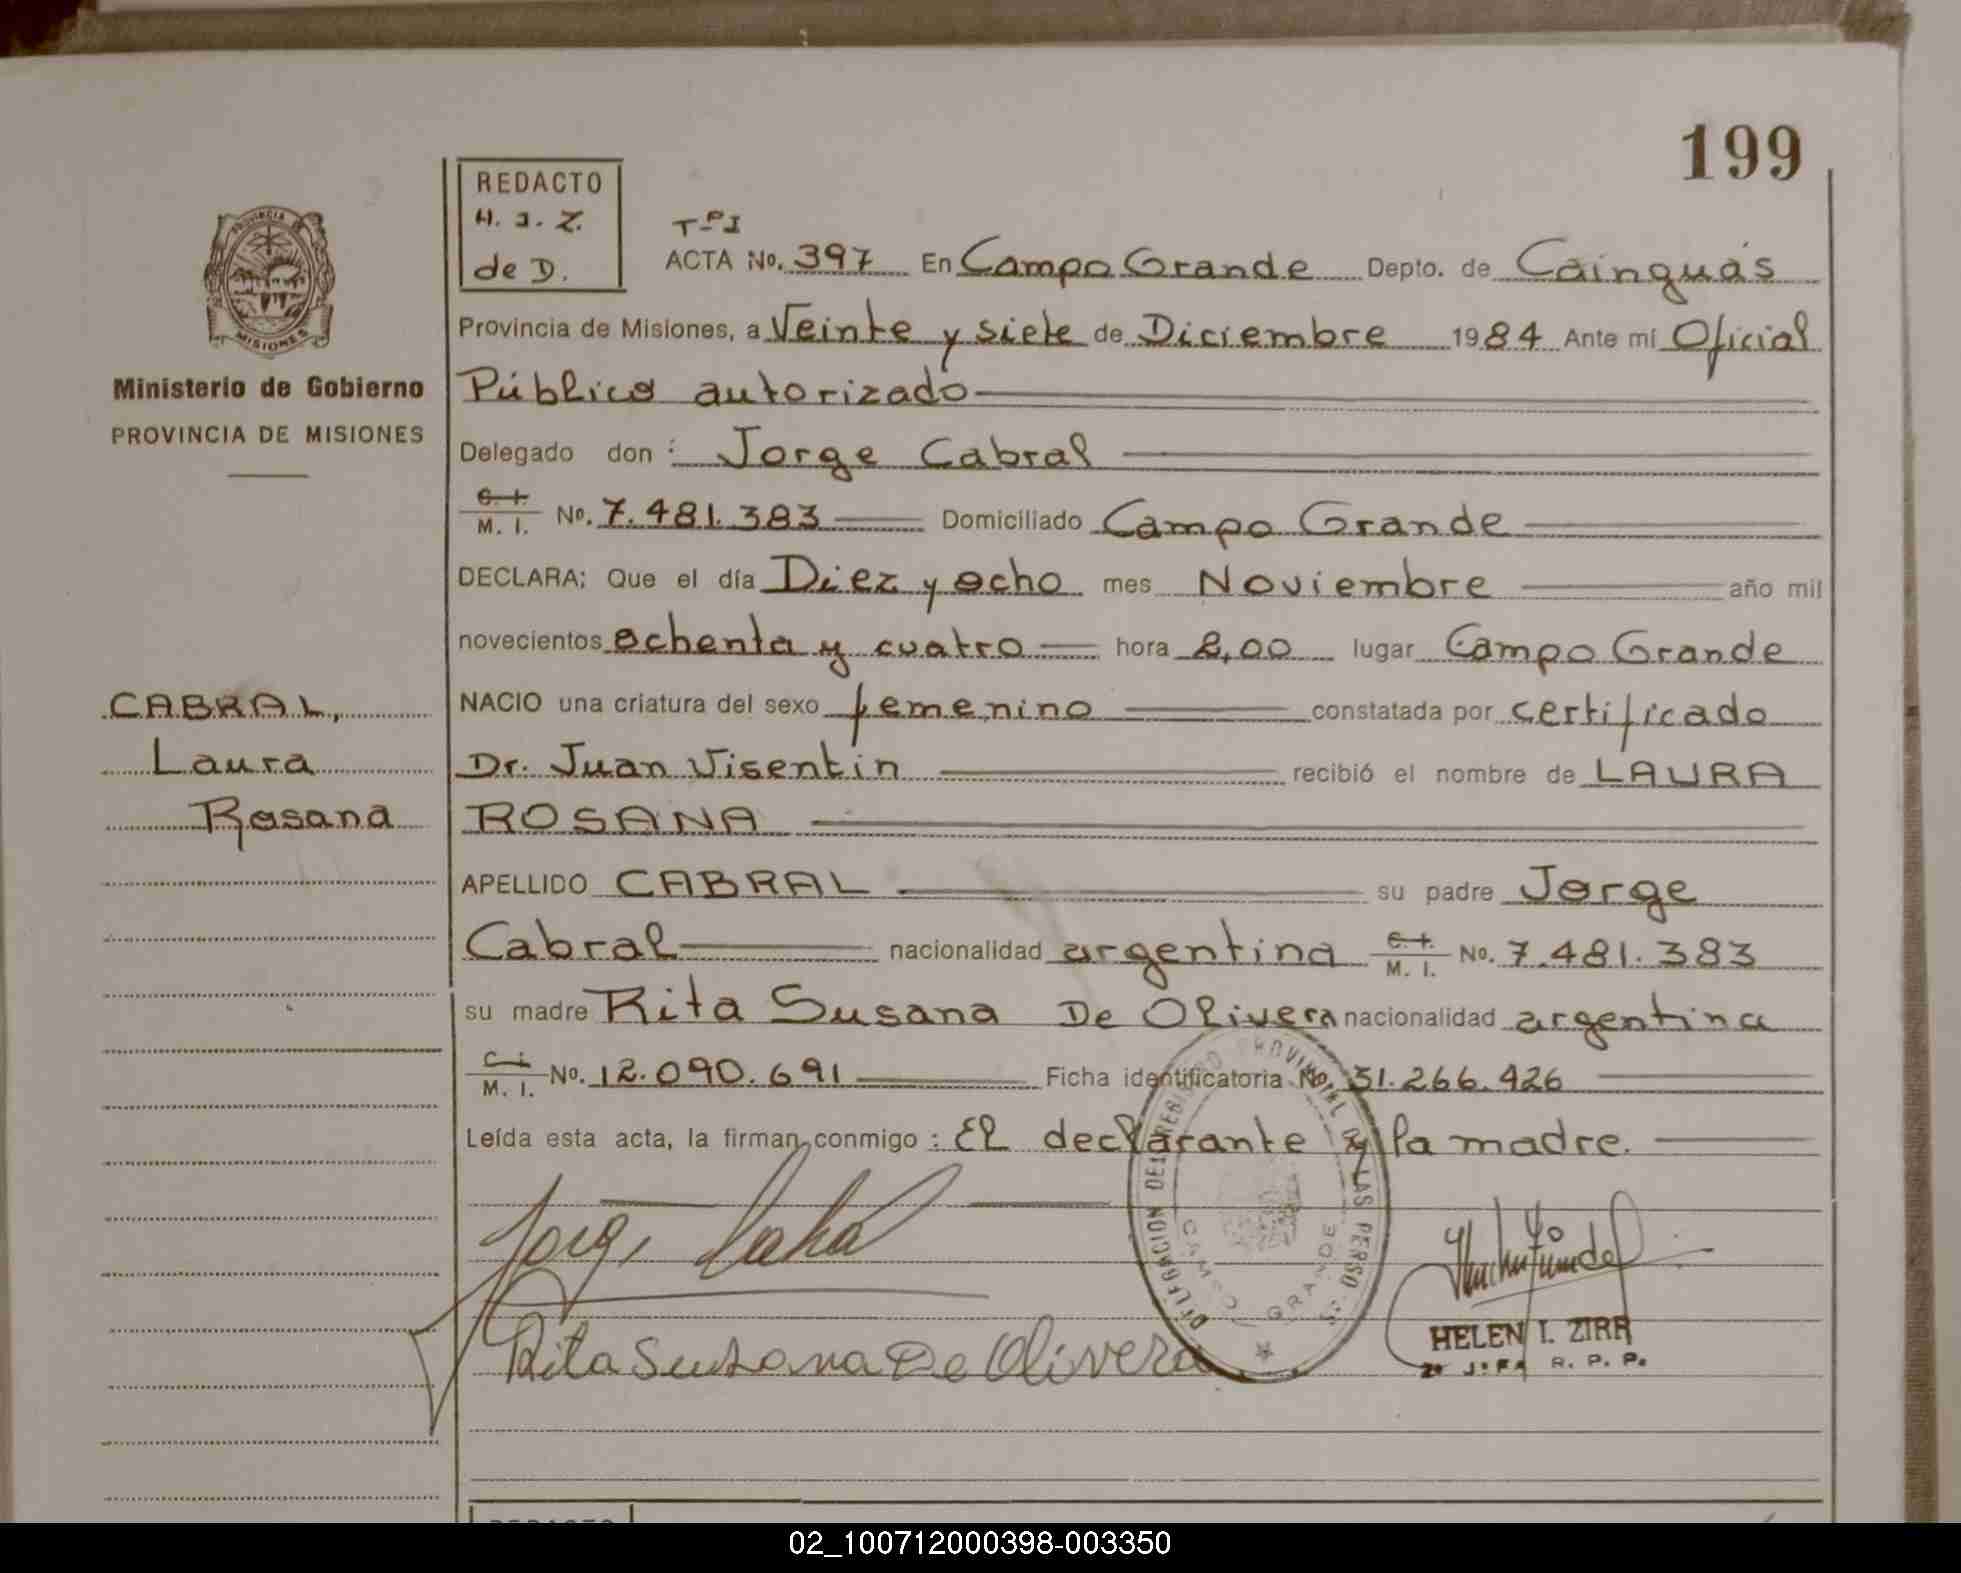 199
REDACTO
H. I. Z.
de D.
PROVINCIA
MISIONES
Ministerio de Gobierno
PROVINCIA DE MISIONES
TºI
ACTA No. 397 En Campo Grande Depto. de Cainguás
Provincia de Misiones, a Veinte y siete de Diciembre 1984 Ante mí Oficial
Público autorizado
Delegado don: Jorge Cabral
C. I. M. I. No. 7.481.383 Domiciliado Campo Grande
DECLARA; Que el día Diez y ocho mes Noviembre año mil
novecientos ochenta y cuatro hora 2,00 lugar Campo Grande
CABRAL, NACIO una criatura del sexo femenino constatada por certificado
Laura Dr. Juan Visentin recibió el nombre de LAURA
Rosana ROSANA
APELLIDO CABRAL su padre Jorge
Cabral nacionalidad argentina C. I. M. I. No. 7.481.383
su madre Rita Susana De Olivera nacionalidad argentina
C. I. M. I. No. 12.090.691 Ficha identificatoria No. 31.266.426
Leída esta acta, la firman conmigo: El declarante y la madre.
DELEGACION DEL REGISTRO PROVINCIAL DE LAS PERSONAS
CAMPO GRANDE
Rita Susana De Olivera
HELEN I. ZIRR
R. P. P.
REDACTO
02_100712000398-003350